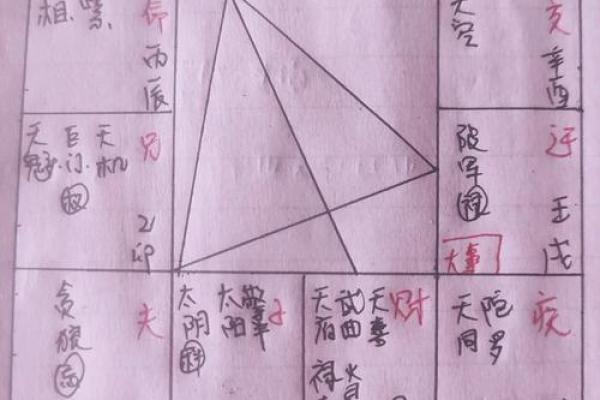 相 紫 命
丙辰
天空 友
辛酉
天魁 巨门 天机 兄
权
乙卯
破军 迁
禄
壬戌
大事
贪狼 夫
忌
太阴 太阳 擎羊 子
科
天府 武曲 天喜 财
禄 火
天同 陀罗 疾